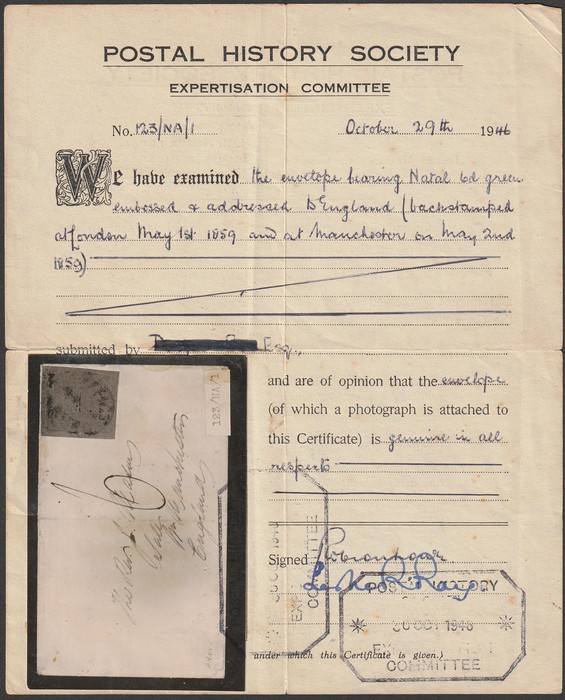 POSTAL HISTORY SOCIETY
EXPERTISATION COMMITTEE
No. 123/NA/1 October 29th 1946
We have examined the envelope bearing Natal 6d green
embossed & addressed to England (backstamped
at London May 1st 1859 and at Manchester on May 2nd
1859)
submitted by Esq.,
and are of opinion that the envelope
(of which a photograph is attached to
this Certificate) is genuine in all
respects
123/NA/1
England
Signed
POSTAL HISTORY
OCT 1946
COMMITTEE
COMMITTEE
under which this Certificate is given.)